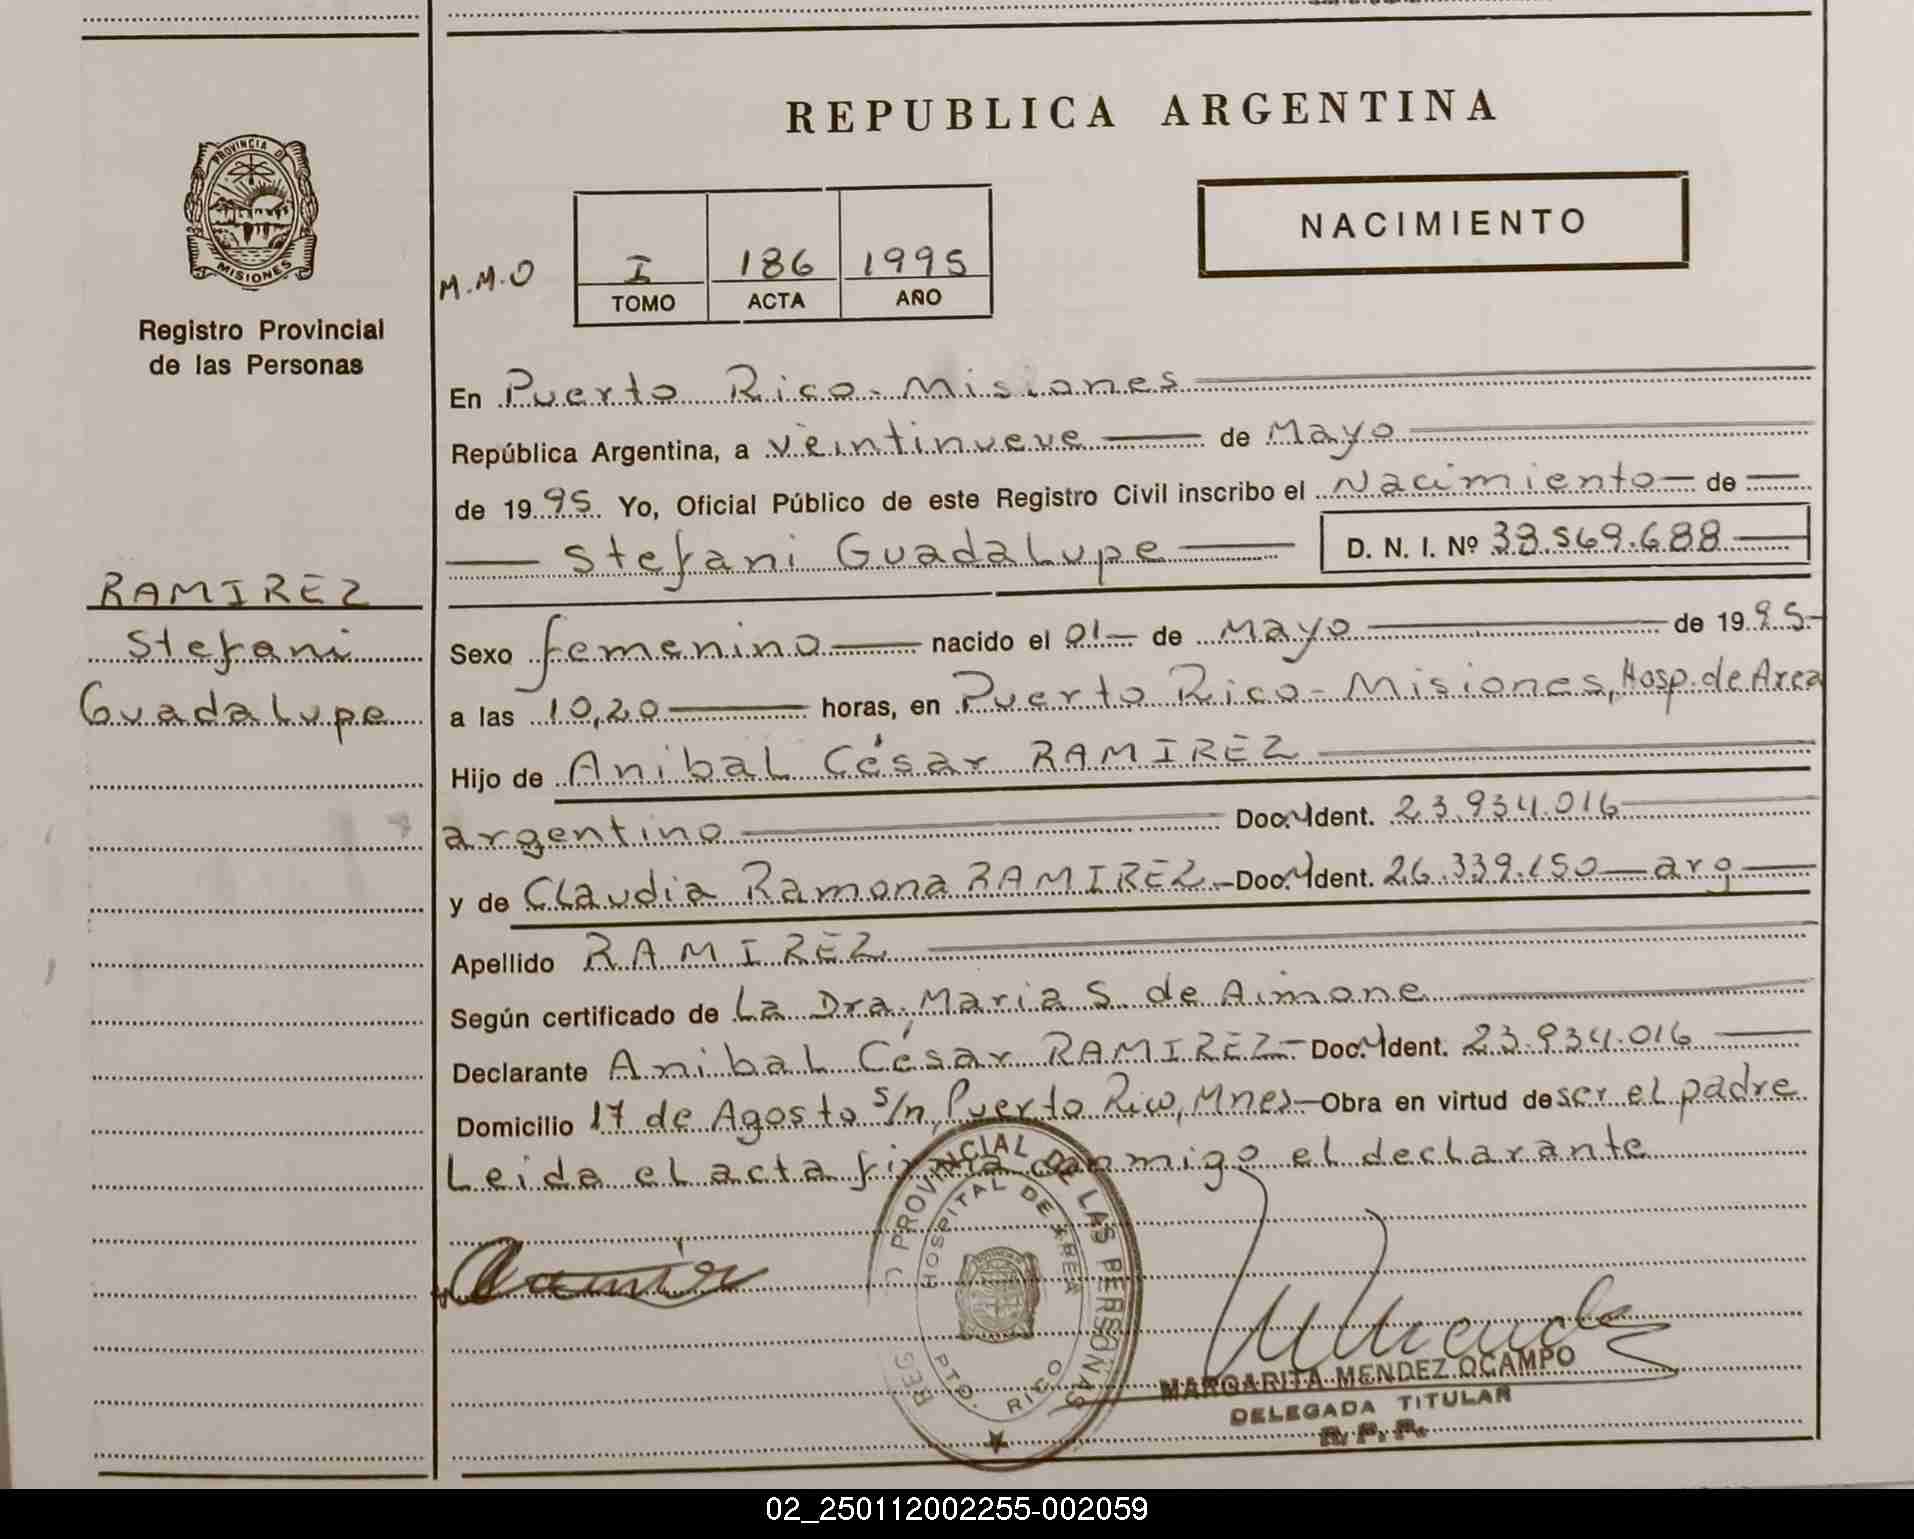 REPUBLICA ARGENTINA
PROVINCIA DE
MISIONES
Registro Provincial
de las Personas
M.M.O
I 186 1995
TOMO ACTA AÑO
NACIMIENTO
En Puerto Rico - Misiones
República Argentina, a veintinueve de Mayo
de 1995 Yo, Oficial Público de este Registro Civil inscribo el Nacimiento de
Stefani Guadalupe D. N. I. Nº 38.569.688
RAMIREZ
Stefani
Guadalupe
Sexo femenino nacido el 01 de Mayo de 1995
a las 10,20 horas, en Puerto Rico - Misiones, Hosp. de Area
Hijo de Anibal César RAMIREZ
argentino Doc. Ident. 23.934.016
y de Claudia Ramona RAMIREZ Doc. Ident. 26.339.150 - arg
Apellido RAMIREZ
Según certificado de La Dra. Maria S. de Aimone
Declarante Anibal César RAMIREZ - Doc. Ident. 23.934.016
Domicilio 17 de Agosto s/n, Puerto Rico, Mnes - Obra en virtud de ser el padre
Leida el acta firma conmigo el declarante
REG PROVINCIAL DE LAS PERSONAS
HOSPITAL DE AREA
PTO. RICO
MARGARITA MENDEZ OCAMPO
DELEGADA TITULAR
R.P.P.
02_250112002255-002059